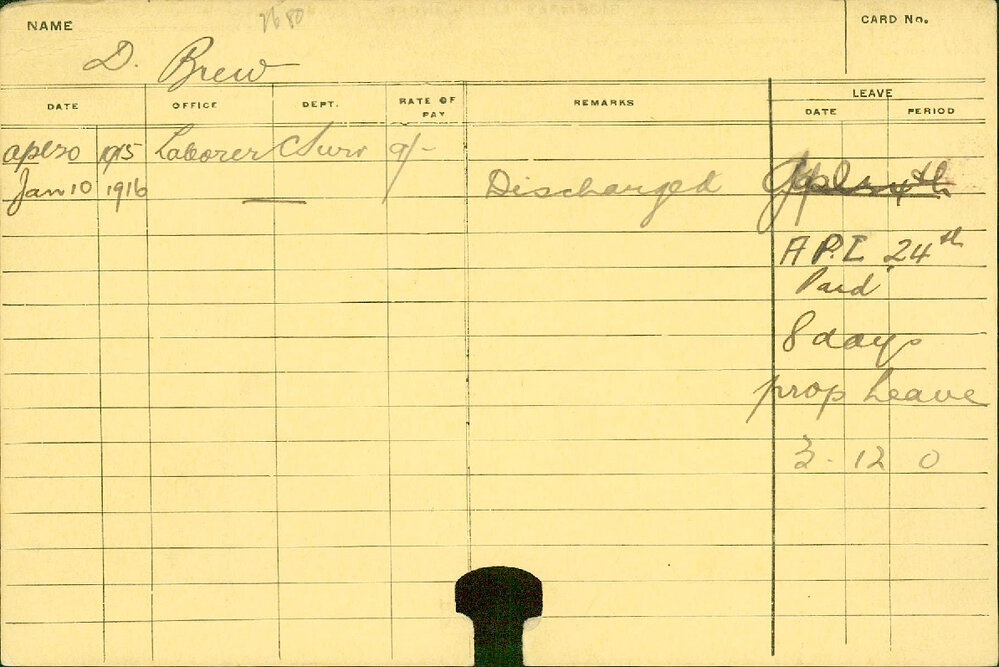 NAME
CARD No.
D. Brew
DATE OFFICE DEPT. RATE OF PAY REMARKS LEAVE
DATE PERIOD
apl 20 1915 Laborer C Surv 9/-
Jan 10 1916 — Discharged
A P.L 24th
Paid
8 days
prop Leave
3 - 12 0